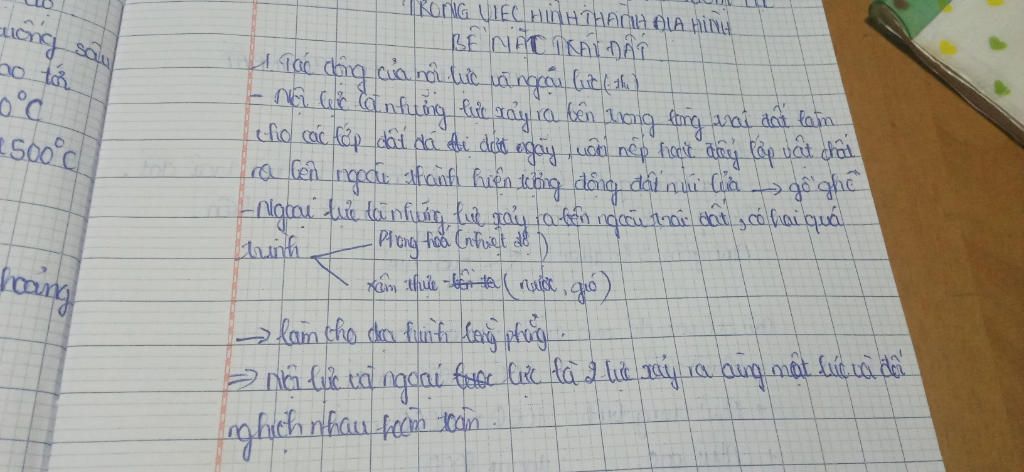 TRONG VIỆC HÌNH THÀNH ĐỊA HÌNH
BỀ MẶT TRÁI ĐẤT
1 Tác động của nội lực và ngoại lực
- Nội lực là những lực xảy ra bên trong lòng trái đất làm
cho các lớp đất đá đứt gãy, uốn nếp hoặc đẩy lớp vật chất
ra bên ngoài thành hiện tượng động đất núi lửa → gồ ghề
- Ngoại lực là những lực xảy ra bên ngoài trái đất, có hai quá
trình
Phong hoá (nhiệt độ)
xâm thực (nước, gió)
→ làm cho địa hình bằng phẳng.
⇒ Nội lực và ngoại lực là 2 lực xảy ra cùng một lúc và đối
nghịch nhau hoàn toàn.
uống sâu
ao tới
0°C
1500°C
hoảng